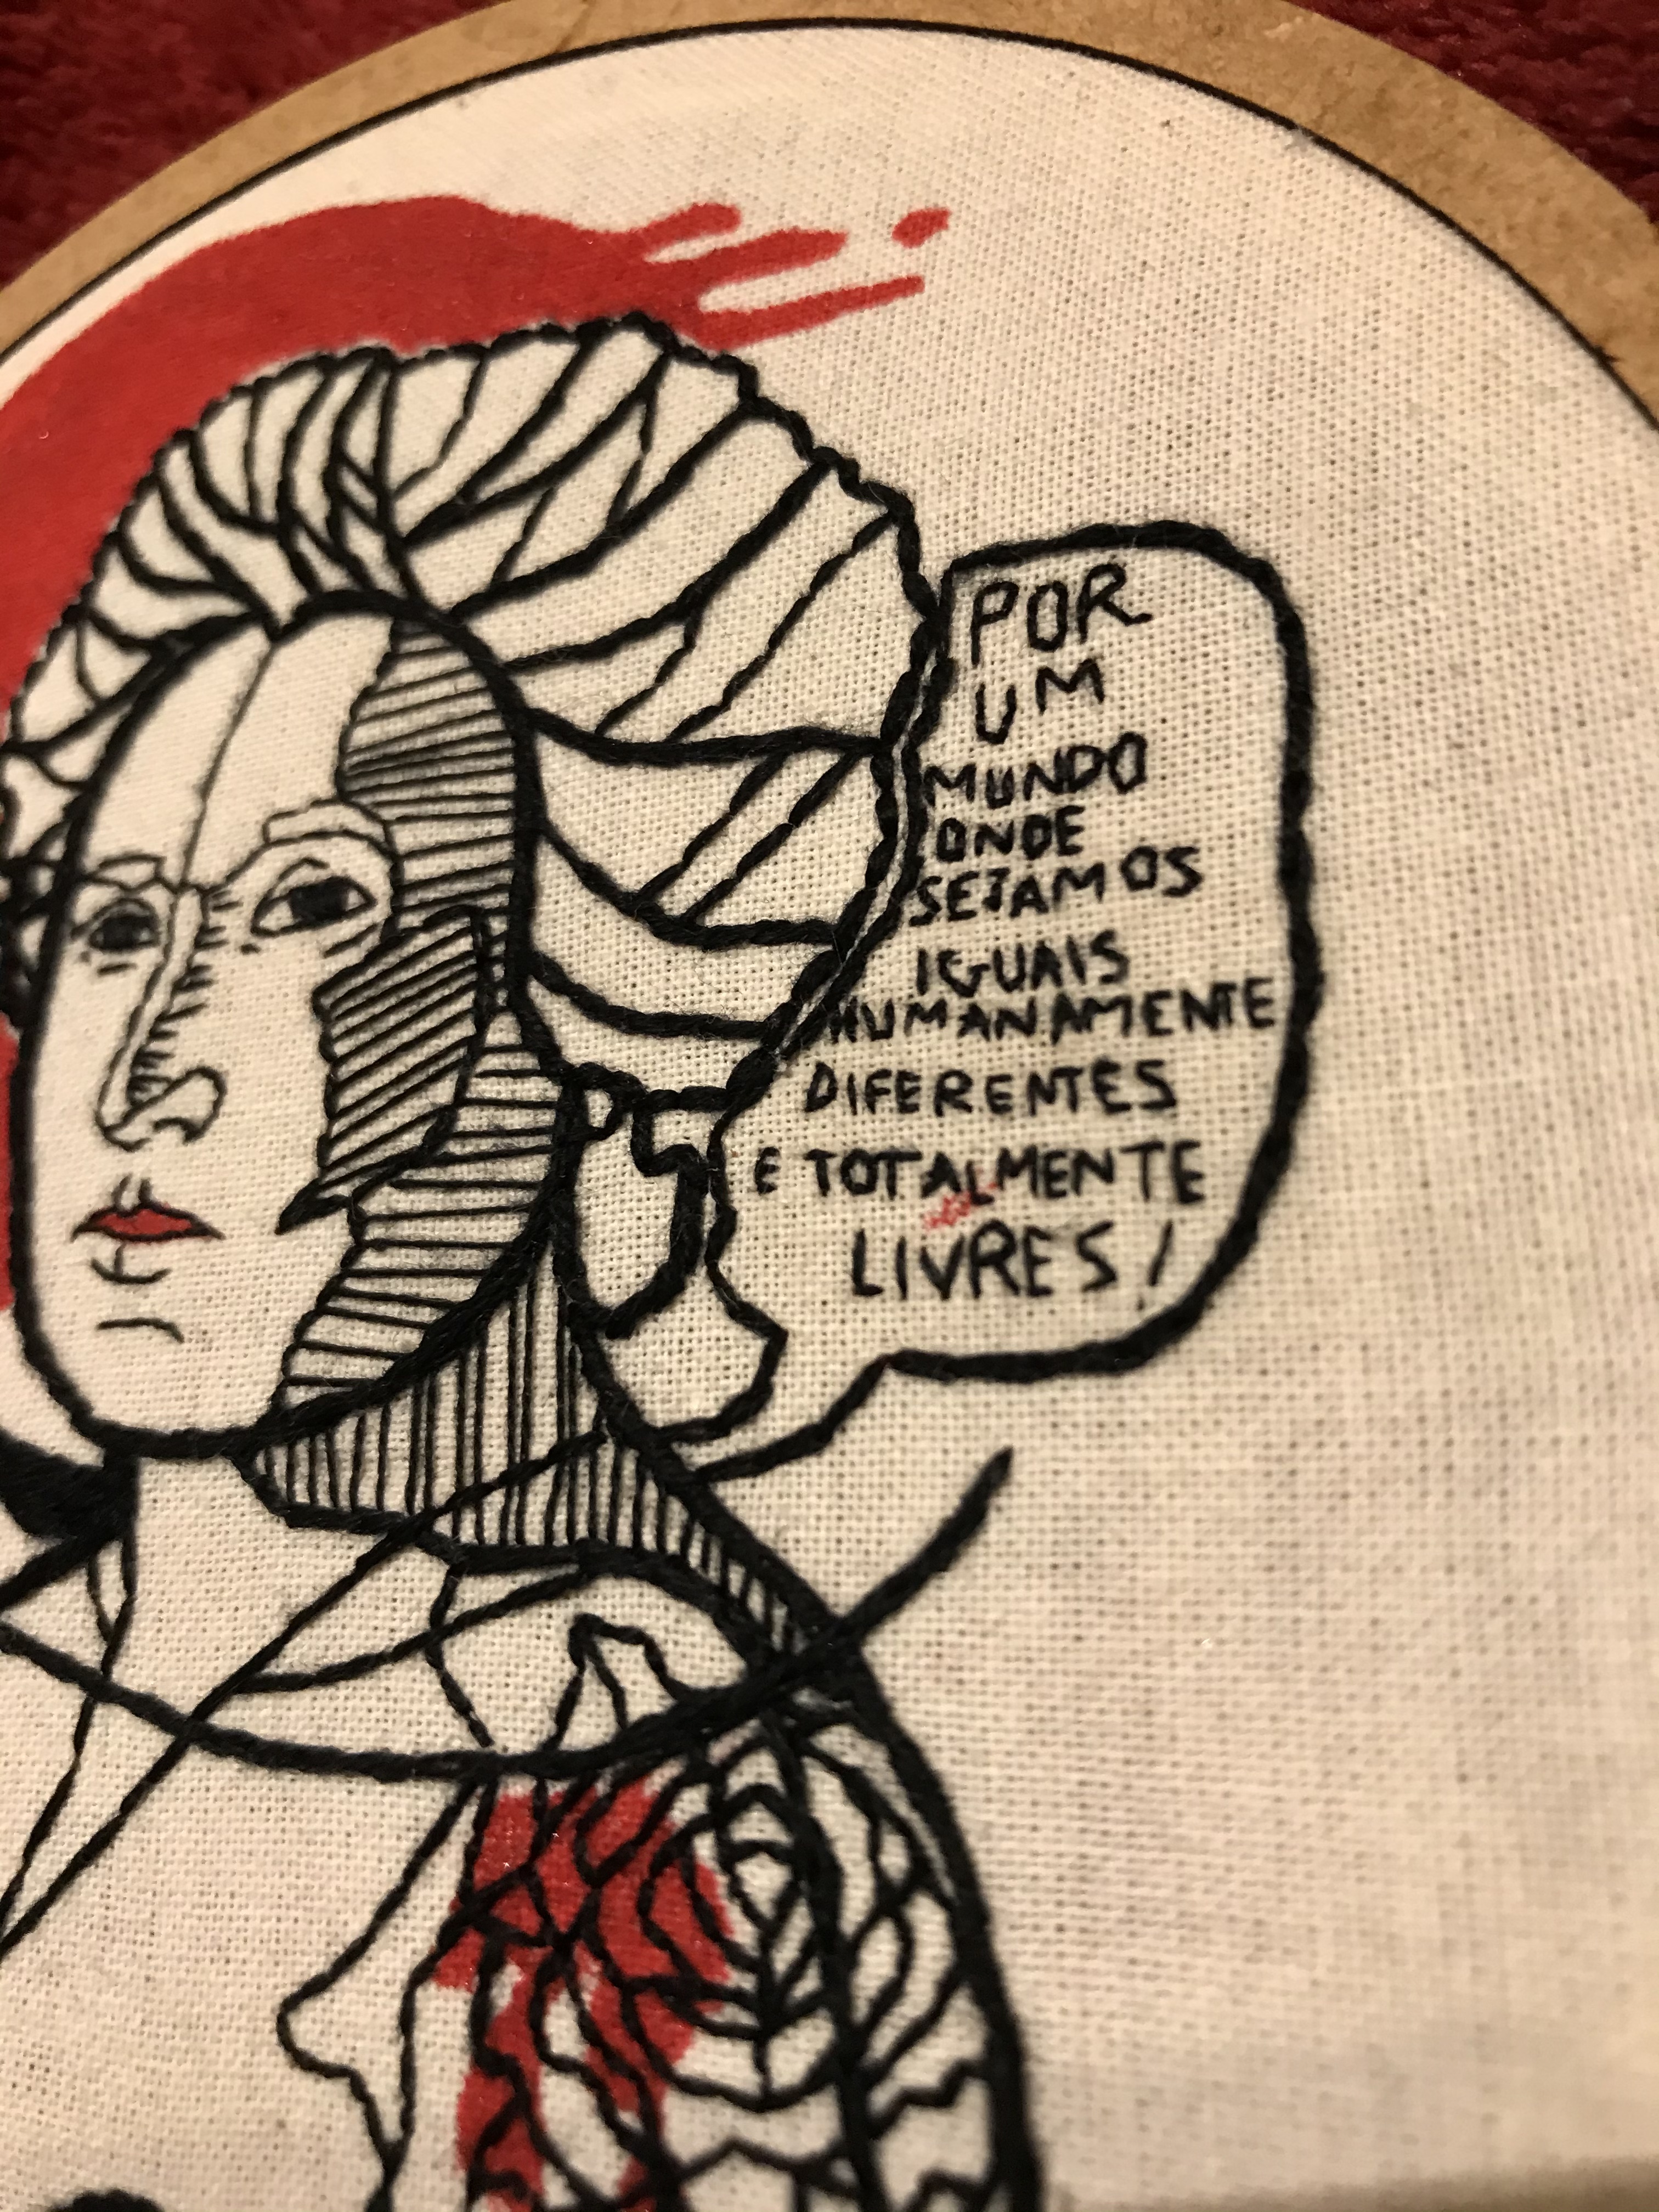 POR
UM
MUNDO
ONDE
SEJAMOS
IGUAIS
HUMANAMENTE
DIFERENTES
E TOTALMENTE
LIVRES!